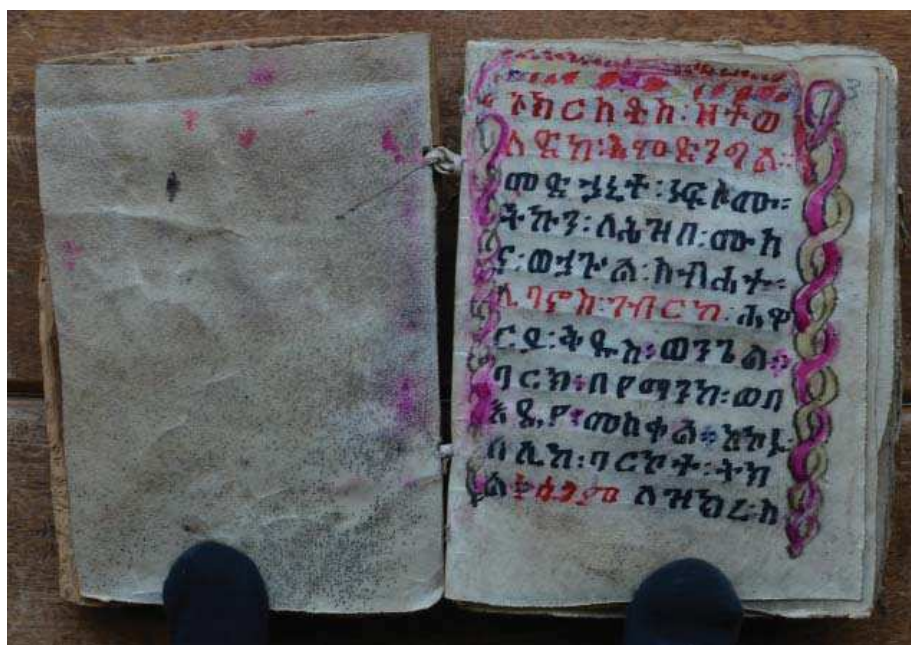 3
ኦክርስቶስ፡ዝተወ
ለድከ፡እምድንግል።
መድኃኒተ፡ነፍሶሙ፡
ትኩን፡ለሕዝበ፡ሙስ
ና፡ወኃጕል፡ስብሐተ፡
ሊባኖስ፡ገብርከ፡ሐዋ
ርያ፡ቅዱስ፡ወንጌል።
ባርክ፡በየማንከ፡ወበ
እዴየ፡መስቀል።አኮኑ፡
ለሊከ፡ባርኮተ፡ትክ
ል፡ሰላም ለዝክረ፡ስ